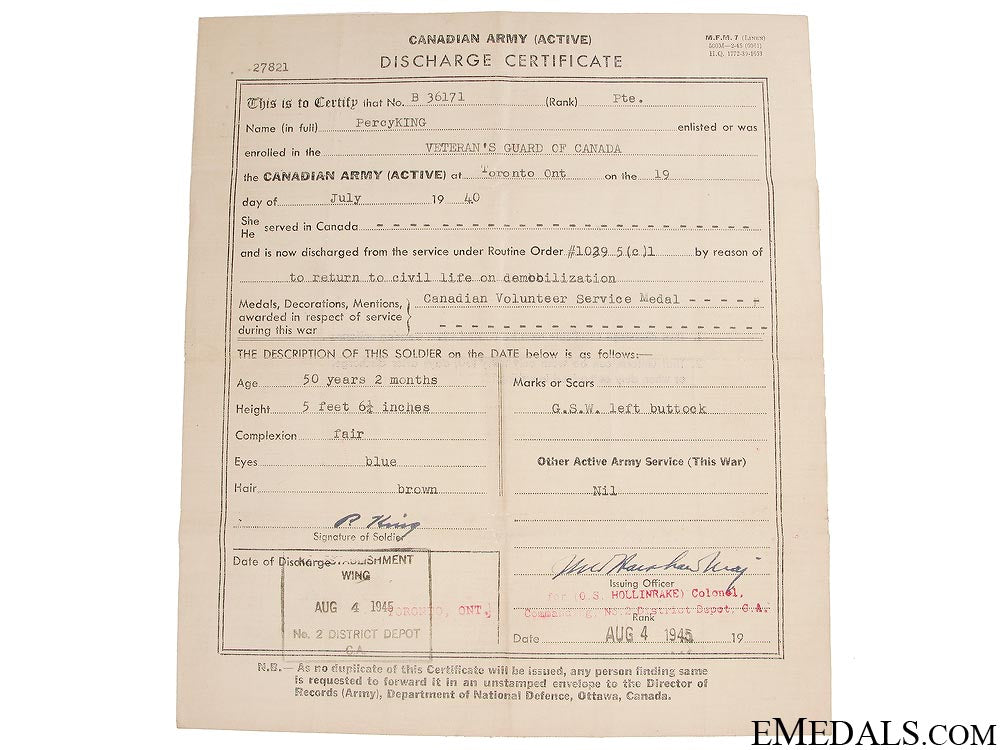 CANADIAN ARMY (ACTIVE)
M.F.M. 7 (Linen)
H.Q. 1772-39-1653
DISCHARGE CERTIFICATE
27821
This is to Certify that No. B 36171 (Rank) Pte.
Name (in full) PercyKING enlisted or was
enrolled in the VETERAN'S GUARD OF CANADA
the CANADIAN ARMY (ACTIVE) at Toronto Ont on the 19
day of July 19 40
She
He served in Canada
and is now discharged from the service under Routine Order #1029 5(c)1 by reason of
to return to civil life on demobilization
Medals, Decorations, Mentions, Canadian Volunteer Service Medal - - - - -
awarded in respect of service
during this war
THE DESCRIPTION OF THIS SOLDIER on the DATE below is as follows:—
Age 50 years 2 months
Height 5 feet 6½ inches
Complexion fair
Eyes blue
Hair brown
P King
Signature of Soldier
Marks or Scars
G.S.W. left buttock
Other Active Army Service (This War)
Nil
Date of Discharge
ESTABLISHMENT
WING
AUG 4 1945
TORONTO, ONT.
No. 2 DISTRICT DEPOT
C.A.
Issuing Officer
for (O.S. HOLLINRAKE) Colonel,
Commanding, No. 2 District Depot, C.A.
Rank
Date AUG 4 1945 19
N.B.— As no duplicate of this Certificate will be issued, any person finding same
is requested to forward it in an unstamped envelope to the Director of
Records (Army), Department of National Defence, Ottawa, Canada.
EMEDALS.COM